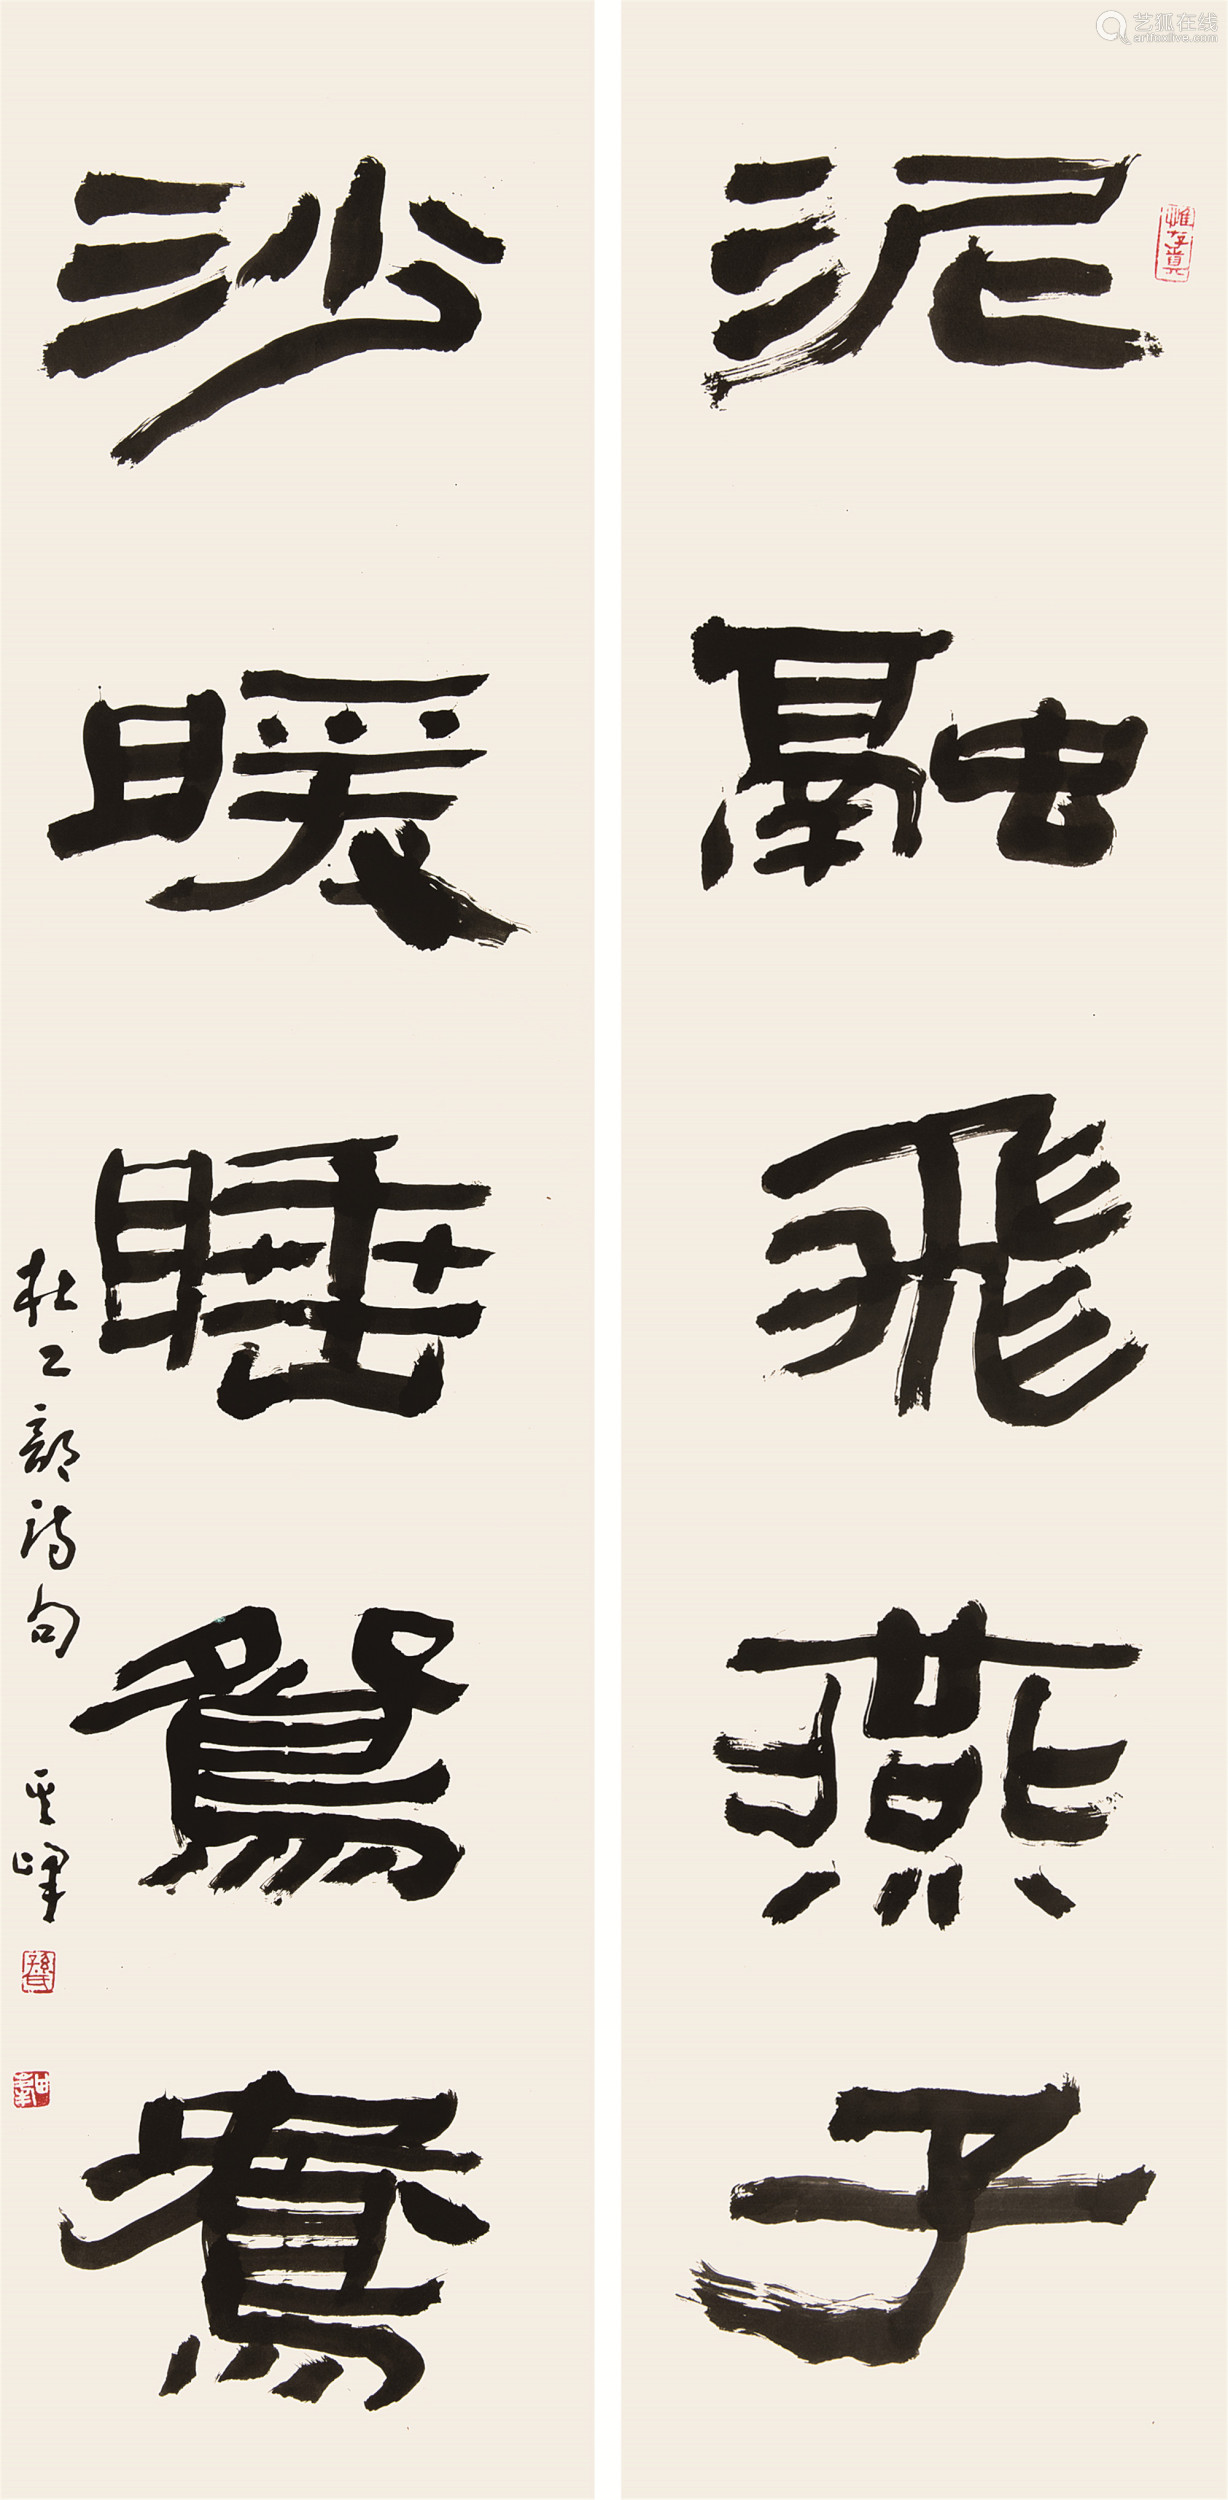 泥融飛燕子
沙暖睡鴛鴦
杜工部詩句 其峰
惟存真
艺狐在线
artfoxlive.com